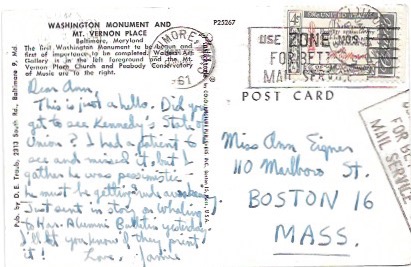 WASHINGTON MONUMENT AND
MT. VERNON PLACE
Baltimore, Maryland
The first Washington Monument to be begun and
first of importance to be completed. Walters Art
Gallery is in the left foreground and the Mt.
Vernon Place Church and Peabody Conservatory
of Music are to the right.
P25267
Dear Ann,
This is just a hello. Did you
get to see Kennedy's State
Union? I had a patient to
see and missed it, but I
gather he was pessimistic.
he must be getting
Just sent in story on Whaling
to Har. Alumni Bulletin yesterday
I'll let you know if they print
it! Love, Jamie
Pub. by D. E. Traub, 2313 South Rd., Baltimore 9, Md.
61
4¢
USE ZONE NOS.
FOR BETTER
MAIL SERVICE
POST CARD
Miss Ann Eigner
110 Marlboro St.
BOSTON 16
MASS.
FOR BE
MAIL SERVICE